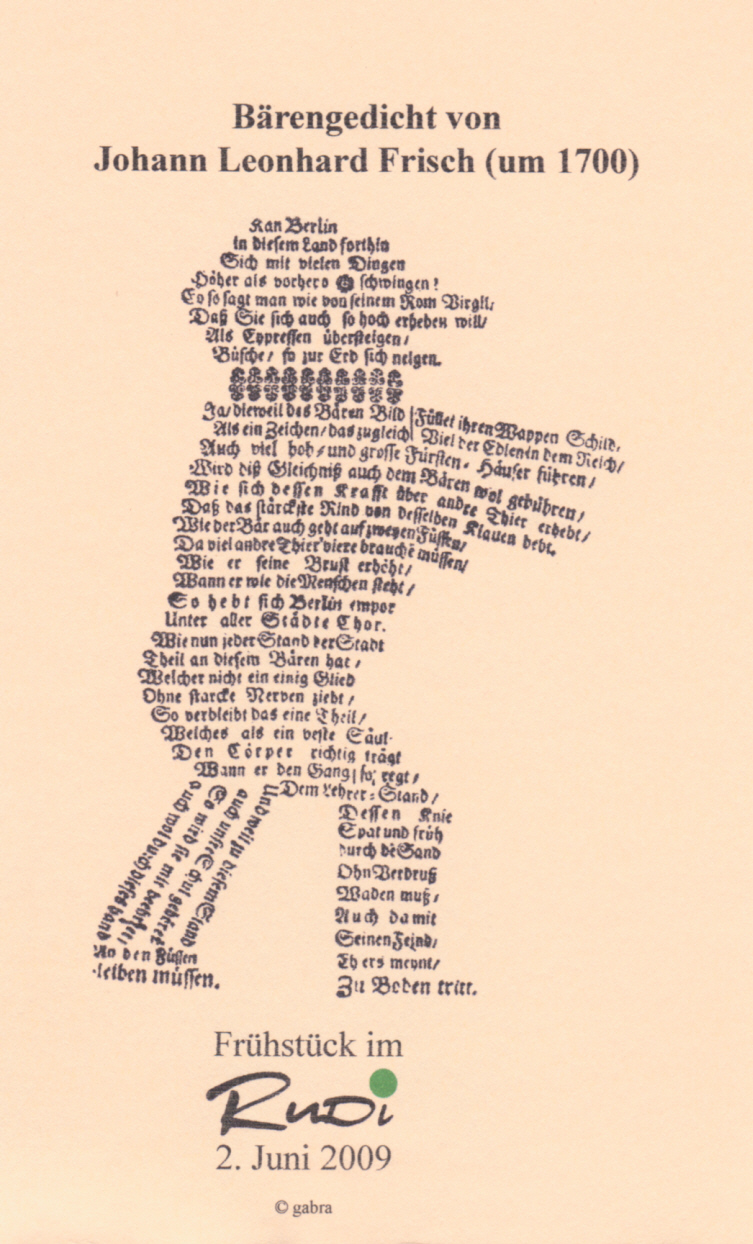 Bärengedicht von
Johann Leonhard Frisch (um 1700)
Kan Berlin
in diesem Land forthin
Sich mit vielen Dingen
Höher als vorhero schwingen!
Eo so sagt man wie von seinem Rom Virgil/
Daß Sie sich auch so hoch erheben will/
Als Cypressen übersteigen/
Büsche/ so zur Erd sich neigen.
Ja/ dieweil des Bären Bild Füllet ihren Wappen Schild,
Als ein Zeichen/ das zugleich Viel der Edlen in dem Reich/
Auch viel hoh- und grosse Fürsten- Häuser führen/
Wird diß Gleichniß auch dem Bären wol gebühren/
Wie sich dessen Krafft über andre Thier erhebt/
Daß das stärckste Rind von desselben Klauen bebt.
Wie der Bär auch geht auf zweyen Füssen/
Da viel andre Thier viere brauchē müssen/
Wie er seine Brust erhöht/
Wann er wie die Menschen steht/
So hebt sich Berlin empor
Unter aller Städte Chor.
Wie nun jeder Stand der Stadt
Theil an diesem Bären hat/
Welcher nicht ein einig Glied
Ohne starcke Nerven ziebt/
So verbleibt das eine Theil/
Welches als ein veste Säul-
Den Cörper richtig trägt
Wann er den Gang/ so; regt/
Dem Lehrer-Stand/
Dessen Knie
Spat und früh
durch dē Sand
Ohn Verdruß
Waden muß/
Auch damit
Seinen Feind/
Eh ers meynt/
Zu Boden tritt.
Und weil zu diesem Stand
auch unsre Schul gehöret
So wird sie mit beehret/
auch wol durch dieses band
An den Füßen
leiben müssen.
Frühstück im
Rudi
2. Juni 2009
© gabra